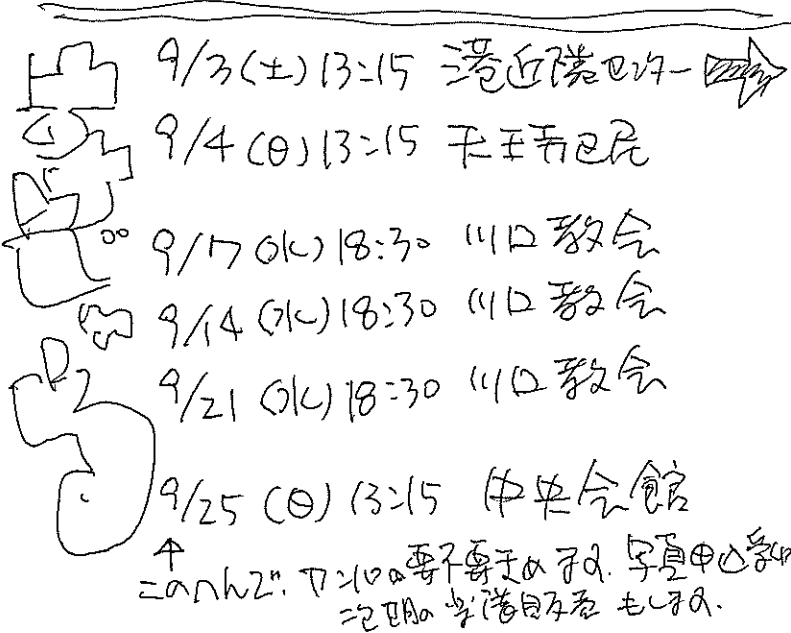 9/3(土)13:15 港近隣センター
9/4(日)13:15 天王寺区民
9/7(水)18:30 川口教会
9/14(水)18:30 川口教会
9/21(水)18:30 川口教会
9/25(日)13:15 中央会館
このへんで、要不要きめます。写真申込
次期の もします。